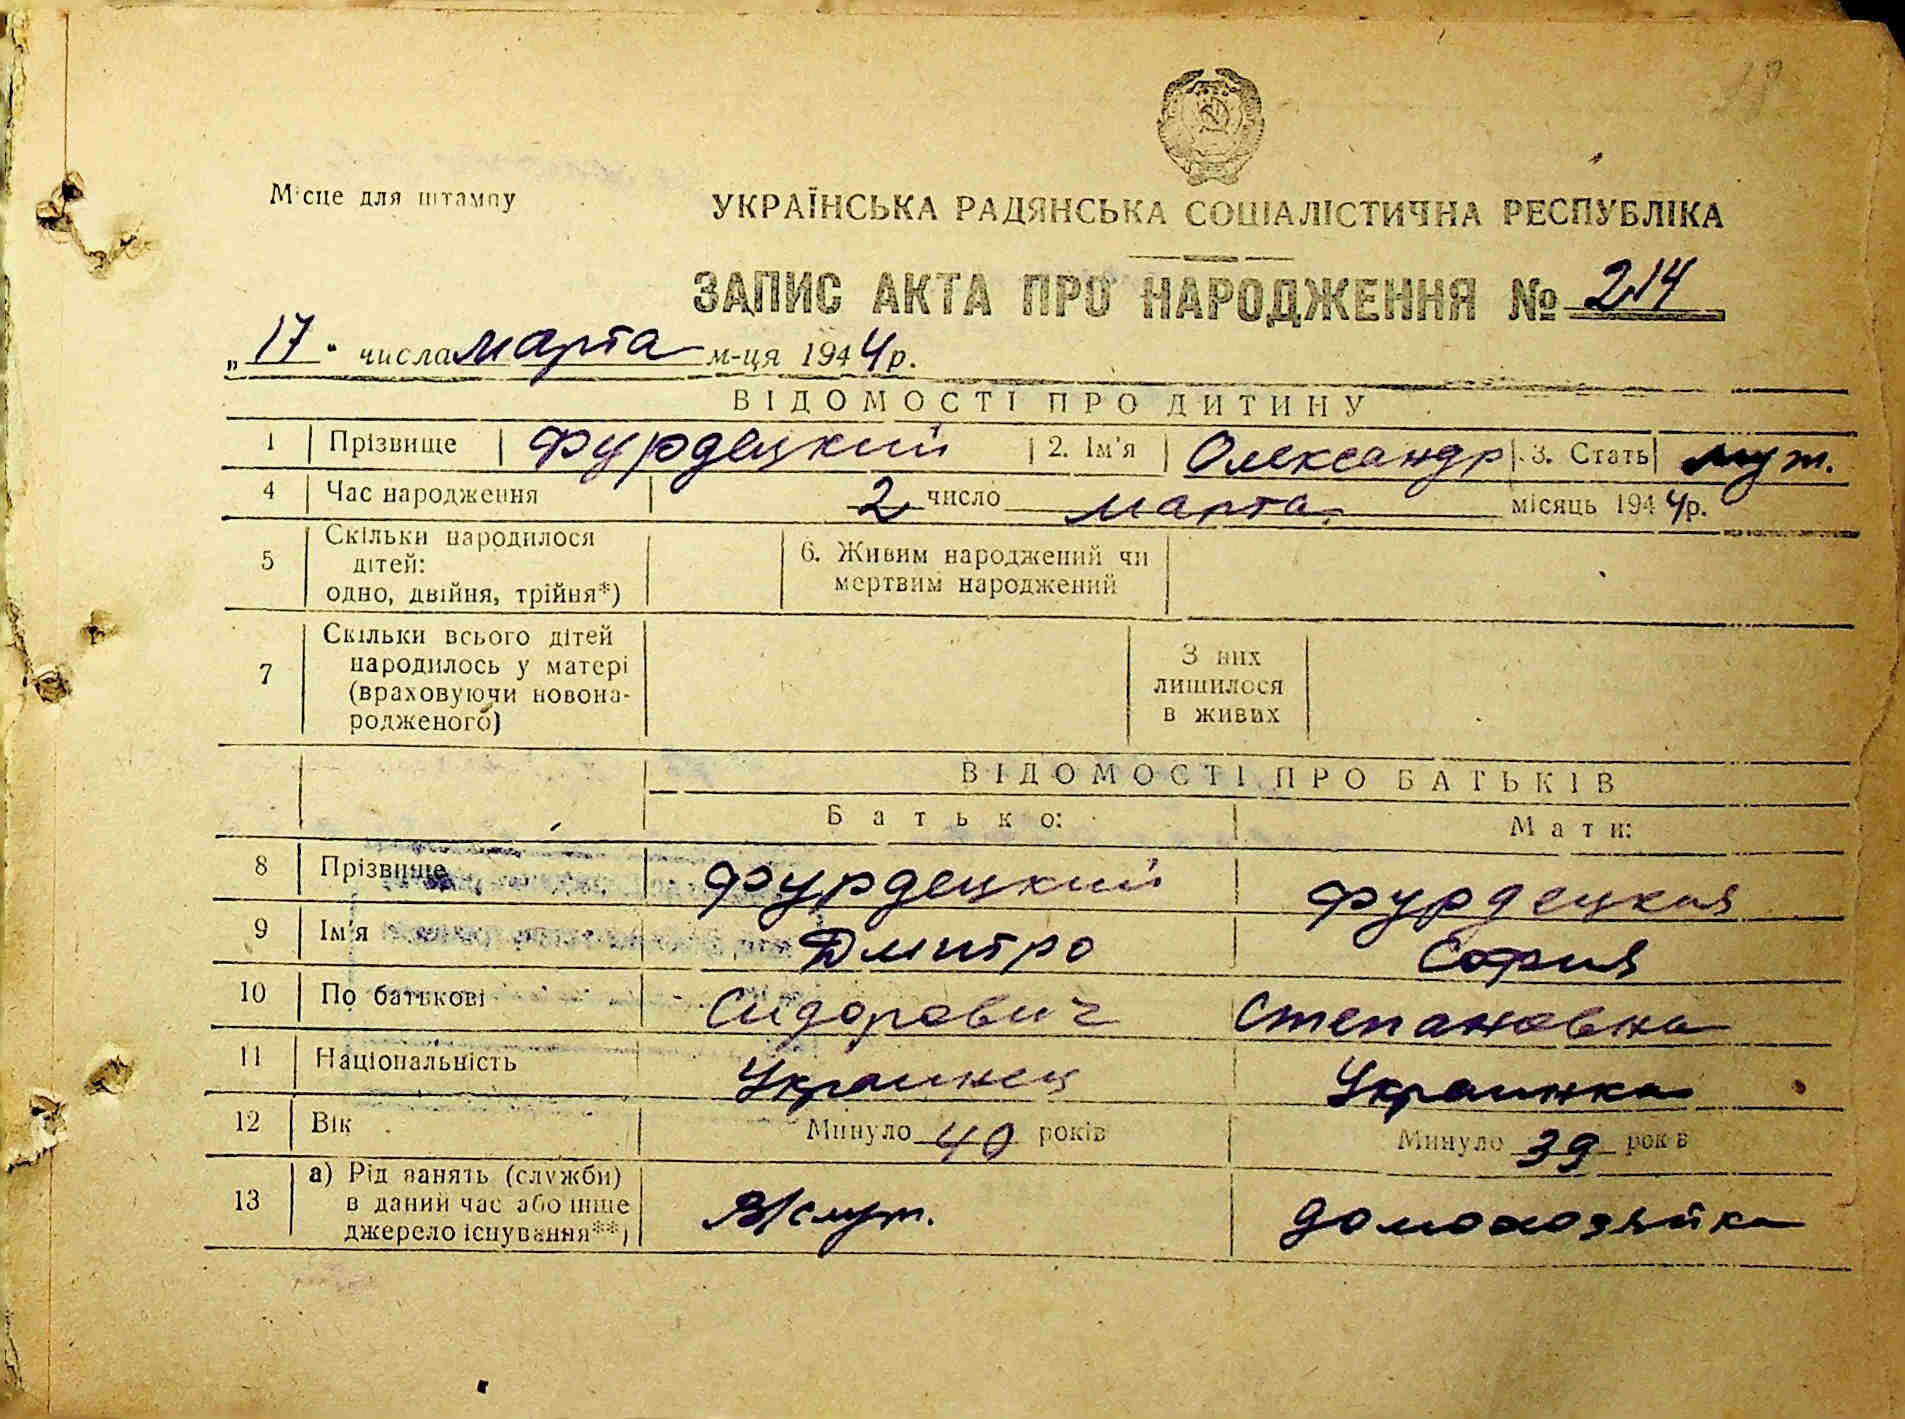 Місце для штампу
УКРАЇНСЬКА РАДЯНСЬКА СОЦІАЛІСТИЧНА РЕСПУБЛІКА
ЗАПИС АКТА ПРО НАРОДЖЕННЯ № 214
„17" числа марта м-ця 1944 р.
ВІДОМОСТІ ПРО ДИТИНУ
1 Прізвище Фурдецкий 2. Ім'я Олександр 3. Стать муж.
4 Час народження 2 число марта місяць 1944 р.
5 Скільки народилося дітей: одно, двійня, трійня*) 6. Живим народжений чи мертвим народжений
7 Скільки всього дітей народилось у матері (враховуючи новонародженого) З них лишилося в живих
ВІДОМОСТІ ПРО БАТЬКІВ
Батько: Мати:
8 Прізвище Фурдецкий Фурдецкая
9 Ім'я Дмитро София
10 По батькові Сидорович Степановна
11 Національність Украинец Украинка
12 Вік Минуло 40 років Минуло 39 років
13 а) Рід занять (служби) в даний час або інше джерело існування**) В/служ. домохозяйка